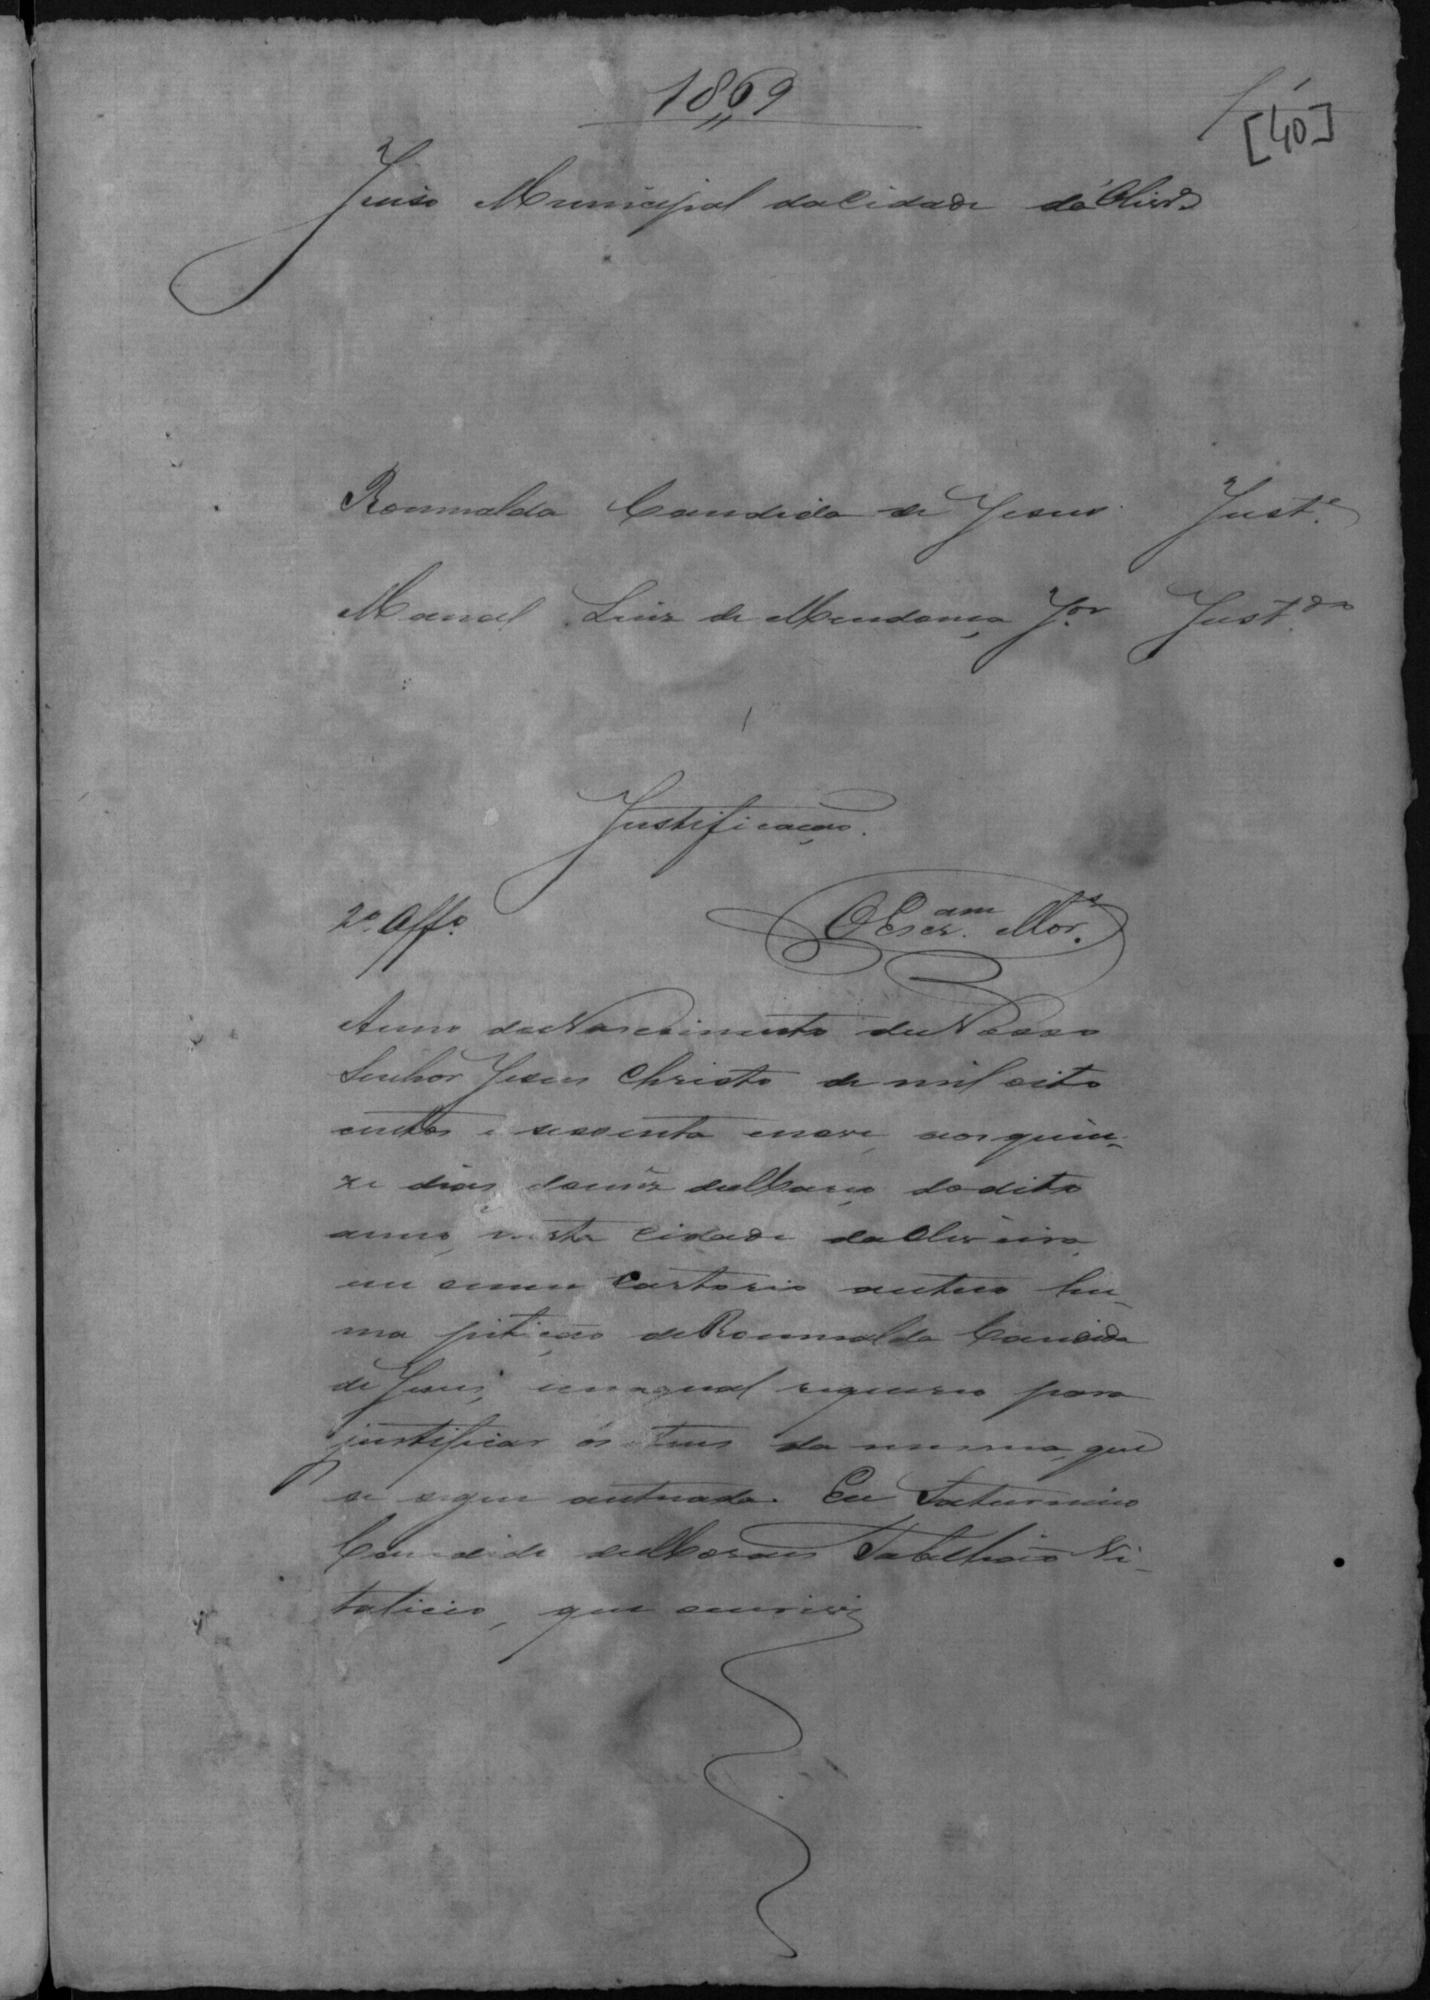 1869
[40]
Juiso Municipal da Cidade da Olivrª
Romualda Candida de Jesus Juste.
Manoel Luiz de Mendonça Jor Justdo
Justificação.
2º Offº
O Escram Mors.
Anno do Nascimento de Nosso
Senhor Jesus Christo de mil oito
centos e sessenta e nove, aos quin-
ze dias do mez de Março do dito
anno, nesta Cidade da Oliveira,
em o meu Cartorio autuo hu-
ma pitição de Romualda Candida
de Jesus, em a qual requereo para
justificar os itens da mesma, que
se segue autuada. Eu Saturnino
Candido de Moraes Tabelhião Vi-
talicio, que escrivi